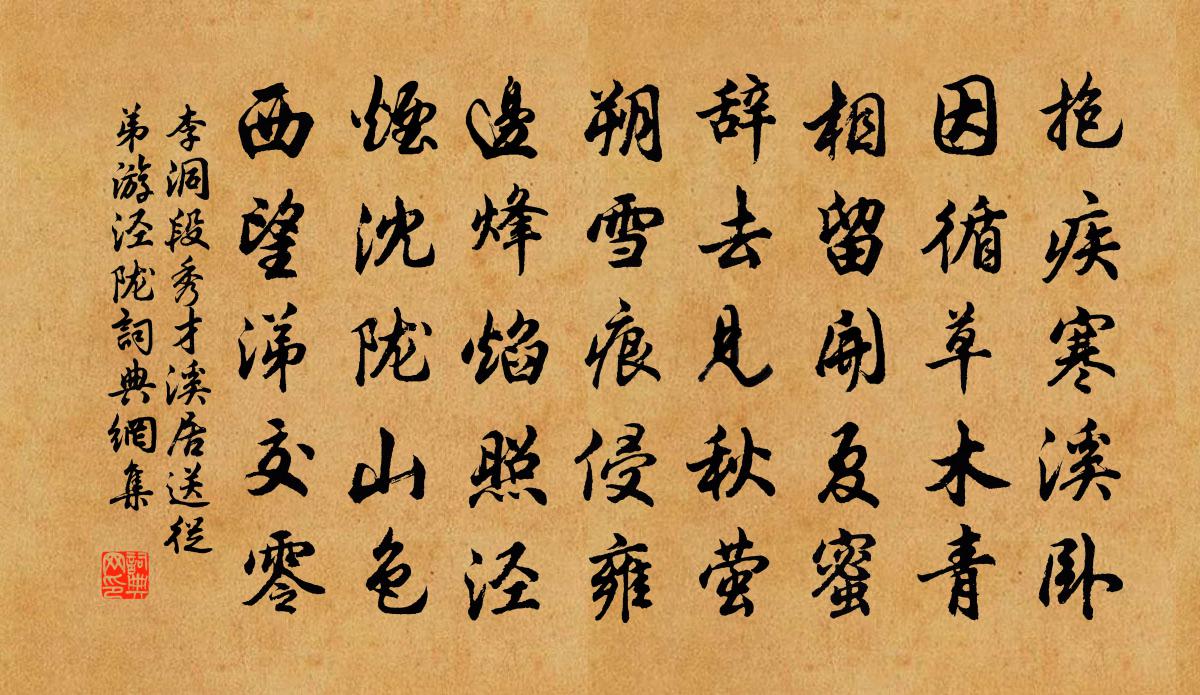 抱疾寒溪卧
因循草木青
相留開夏蜜
辞去見秋萤
朔雪痕侵雍
邊烽焰照泾
煙沈陇山色
西望涕交零
李洞段秀才溪居送從
弟游泾陇詞典網集
詞典
网印